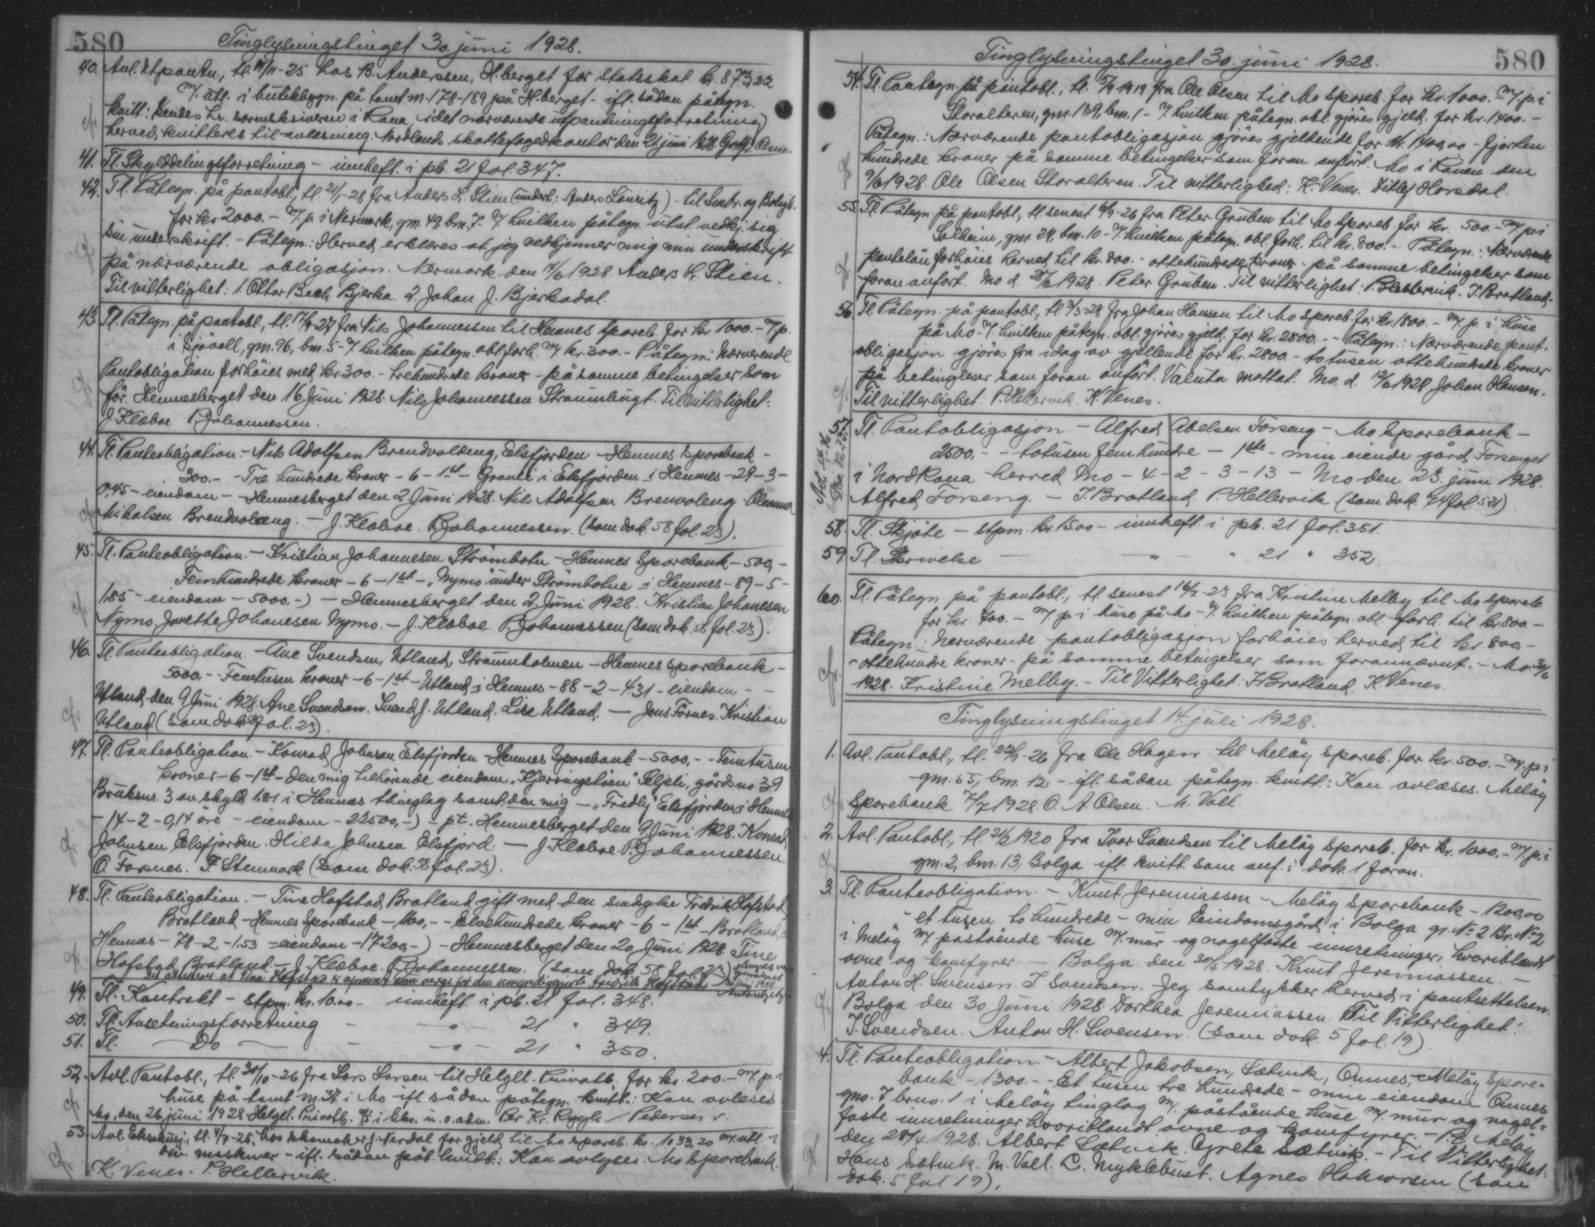 580
Tinglysningstinget 30 juni 1928.
40. Avl. Utpantn., tl. 14/11-25 hos B. Anderssen, H.berget for statsskat kr. 873,22
m/ utl. i butikbygn. på tomt m. 178-189 på H.berget - ifl. sådan påtegn.
kvitt: Sendes hr. sorenskriveren i Rana, idet nærværende utpantningsforretning
herved kvitteres til avlesning. Nordland skattefogedkontor den 21 juni 1928
41. Tl. Skylddelingsforretning - innheft. i pb. 21 fol. 347.
42. Tl. Påtegn. på pantobl., tl. 21/1-28 fra Anders L. Stien (underl: Anders Lauritz) - til Småbr. og Boligb.
for kr 2000.- m/ p. i Nermark, gm. 49 bm. 7 - v/ hvilken påtegn. utst. vedkj. sig
sin underskrift. - Påtegn: Herved erklæres at jeg vedkjenner mig min underskrift
på nærværende obligasjon. Nermark den 11/6 1928 Anders L. Stien.
Til vitterlighet: 1. Ottar Bech Bjerka. 2. Johan J. Bjerkadal.
43. Tl. Påtegn. på pantobl., tl. 17/9-27 fra Nils Johannessen til Hemnes spareb. for kr. 1000.- m/ p.
i Sjåvoll, gm. 96, bm. 5 - v/ hvilken påtegn. obl. forh. m/ kr. 300.- Påtegn: Nærværende
Pantobligation forhöies med kr. 300.- trehundrede kroner - på samme betingelser som
för. Hemnesberget den 16 Juni 1928 Nils Johannessen Straumbugt. Til vitterlighet:
J. Klæboe. P. Johannessen.
44. Tl. Panteobligation - Nils Adolfsen Brendvoldeng, Elsfjorden - Hemnes Sparebank -
300.- - Tre hundrede kroner - 6 - 1st - Granli i Elsfjorden i Hemnes - 29 - 3 -
0,45 - eiendom - Hemnesberget den 2 Juni 1928 Nils Adolfsen Brenvoleng.
Nikolsen Brendvolæng. - J. Klæboe. P. Johannessen. (Som dok. 58 fol. 23).
45. Tl. Panteobligation. - Kristian Johannesen Strömbotn - Hemnes Sparebank - 500,-
Femhundrede kroner - 6 - 1st - "Nymo" under Strömbotne i Hemnes - 89 - 5 -
1.85 - eiendom - 5000.-) - Hemnesberget den 2 Juni 1928. Kristian Johanesen
Nymo Janette Johanesen Nymo. - J. Klæboe. P. Johannessen (som dok. 58 fol. 23).
46. Tl. Panteobligation. - Ane Svendsen, Utland, Straumholmen - Hemnes Sparebank -
5000.- Femtusen kroner - 6 - 1st - Utland i Hemnes - 88 - 2 - 4,31 - eiendom - -
Utland, den 9 Juni 1928. Ane Svendsen. Svend J. Utland. Lise Utland. - Jens Fornes. Kristian
Utland (som dok. 58 fol. 23).
47. Tl. Panteobligation. - Konrad Johnsen Elsfjorden - Hemnes Sparebank - 5000,- - Femtusen
kroner - 6 - 1st - Den mig tilhörende eiendom "Kjerringstien" Seljeli gårdsno. 39
Bruksnr. 3 av skyld 1.81 i Hemnes thinglag samt den mig - "Fredly" Elsfjorden i Hemnes
- 14 - 2 - 0,14 öre - eiendom - 22500,-) - pt. Hemnesberget den 9 Juni 1928. Konrad
Johnsen Elsfjorden. Hilda Johnsen Elsfjord. - J. Klæboe. P. Johannessen.
O. Forsnes. F. Stenmark (Som dok. 58 fol. 23).
48. Tl. Panteobligation. - Tine Hofstad, Bratland, gift med den sindsyke Fredrik Hofstad,
Bratland - Hemnes Sparebank - 1100,- - Elvehundrede kroner - 6 - 1st - Bratland i
Hemnes - 78 - 2 - 1.53 - eiendom - 17200,-) - Hemnesberget den 20 Juni 1928. Tine
Hofstad, Bratland. - J. Klæboe. P. Johannessen. (som dok. 58 fol. 23)
49. Tl. Kontrakt - stpm. kr. 1000.- innheft i pb. 21 fol. 348.
50. Tl. Ansetningsforretning - " - 21 " 349.
51. Tl. - Do - - " - 21 " 350.
52. Avl. Pantobl., tl. 30/10-26 fra Lars Larsen til Helgel. Privatb. for kr. 200.- m/ p. i
huse på tomt m. 24 i Mo ifl. sådan påtegn. kvitt: Kan avleses
Mo, den 26 juni 1928 Helgel. Privatb. A/S i likv. u. o. adm. Per Kr. Rygh / Pedersen
53. Avl. Eksekusj., tl. 4/7-25, hos skomaker J. Nerdal for gjeld til Mo spareb. kr. 1033,20 m/ utl. i
div. maskiner - ifl. sådan påt. kvitt: Kan avlyses. Mo Sparebank.
K. Venes. P. Hellervik.
580
Tinglysningstinget 30. juni 1928.
54. Tl. Påtegn. på pantobl., tl. 5/9-1919 fra Ole Olsen til Mo spareb. for kr. 1000.- m/ p. i
Storalteren, gm. 139, bm. 1 - v/ hvilken påtegn. obl. gjöres gjeld. for kr. 1400.-
Påtegn.: Nærværende pantobligasjon gjöres gjeldende for kr. 1400,00 - fjorten
hundrede kroner på samme betingelser som foran anfört. Mo i Ranen den
9/6 1928. Ole Olsen Storalteren. Til vitterlighed: K. Venes. Ditlef Horsdal.
55. Tl. Påtegn. på pantobl., tl. senest 6/9-26 fra Peter Gruben til Mo spareb. for kr. 500.- m/ p. i
Solheim, gnr. 28, bm. 10 - v/ hvilken påtegn. obl. forh. til kr. 800.- Påtegn.: Nærværende
pantelån forhöies herved til kr. 800.- ottehundrede kroner - på samme betingelser som
foran anfört. Mo d. 21/6 1928. Peter Gruben. Til vitterlighet: P. Hellervik. J. Bratland.
56. Tl. Påtegn. på pantobl., tl. 3/3-28 fra Johan Hansen til Mo spareb. for kr. 1800.- m/ p. i huse
på Mo - v/ hvilken påtegn. obl. gjöres gjeld. for kr. 2800.- - Påtegn.: Nærværende pant-
obligasjon gjöres fra idag av gjellende for kr. 2800.- totusen ottehundrede kroner
på betingelser som foran anfört. Valuta mottat. Mo. d. 12/6 1928. Johan Hansen.
Til vitterlighet: P. Hellervik. K. Venes.
57. Tl. Pantobligasjon. - Alfred Abelsen Forseng - Mo Sparebank -
2500.- - totusen femhundre - 1ste - min eiende gård Forsenget
i Nord Rana herred Mo - 4 - 2 - 3 - 13 - Mo den 23. juni 1928.
Alfred Forseng. - J. Bratland. P. Hellervik (som dok. 24 fol. 521).
58. Tl. Skjöte - stpm. kr. 1500.- innheft. i pb. 21 fol. 351.
59. Tl. Skrivelse - " " 21 " 352.
60. Tl. Påtegn. på pantobl., tl. senest 16/2-23 fra Kristine Melby til Mo spareb.
for kr. 700.- m/ p. i huse på Mo - v/ hvilken påtegn. obl. forh. til kr. 800.-
Påtegn.: Nerværende pantobligasjon forhöies herved til kr. 800,-
- ottehundre kroner - på samme betingelser som forannævnt. - Mo 30/6
1928. Kristine Melby. - Til Vitterlighet: J. Bratland. K. Venes.
Tinglysningstinget 14. juli 1928.
1. Avl. Pantobl., tl. 22/1-26 fra Ole Hagen til Melöy spareb. for kr. 500.- m/ p. i
gm. 65, bm. 12 - ifl. sådan påtegn. kvitt.: Kan avlæses. Melöy
Sparebank 7/7 1928 O. A. Olsen. M. Vall.
2. Avl. Pantobl., tl. 21/6 1920 fra Ivar Svendsen til Melöy spareb. for kr. 1000.- m/ p. i
gm. 2, bm. 13, Bolga ifl. kvitt. som anf. i dok. 1 foran.
3. Tl. Panteobligation. - Knut Jeremiassen - Melöy Sparebank - 1200,00
- et tusen to hundrede - min Eiendomsgård i Bolga gr. No 2 Br. No 2
i Melöy m/ påstående huse m/ mur og nagelfaste innretninger, hvoriblandt
ovne og komfyrer. - Bolga den 30/6 1928. Knut Jeremiassen. -
Anton H. Svensen. J. Svendsen. Jeg samtykker herved i pantsettelsen.
Bolga den 30 Juni 1928 Dorthea Jeremiassen. Til Vitterlighet:
J. Svendsen. Anton H. Svensen. (Som dok. 5 fol. 19).
4. Tl. Panteobligation - Albert Jakobsen, Sætvik, Ørnes, - Melöy Spare-
bank - 1300.- - Et tusen tre hundrede - min eiendom Ørnes
gno. 7 brno. 1 i Melöy tinglag m/ påstående huse m/ mur og nagel-
faste innretninger hvoriblandt ovne og komfyrer. - Melöy
den 28/4 1928. Albert Sætvik. Grete Sætvik. - Til Vitterlighet:
Hans Sætvik. M. Vall. C. Myklebust. Agnes Haakorsen (som
dok. 5 fol 19).